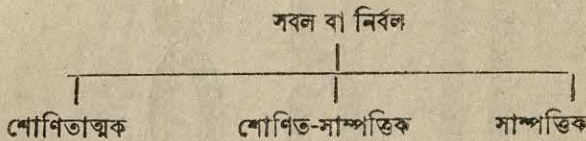 সবল বা নির্বল
শোণিতাত্মক শোণিত-সাম্পত্তিক সাম্পত্তিক